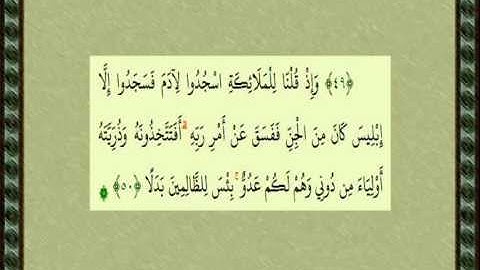 ﴿٤٩﴾ وَإِذْ قُلْنَا لِلْمَلَائِكَةِ اسْجُدُوا لِآدَمَ فَسَجَدُوا إِلَّا
إِبْلِيسَ كَانَ مِنَ الْجِنِّ فَفَسَقَ عَنْ أَمْرِ رَبِّهِ ۗ أَفَتَتَّخِذُونَهُ وَذُرِّيَّتَهُ
أَوْلِيَاءَ مِن دُونِي وَهُمْ لَكُمْ عَدُوٌّ ۚ بِئْسَ لِلظَّالِمِينَ بَدَلًا ﴿٥٠﴾ ۞